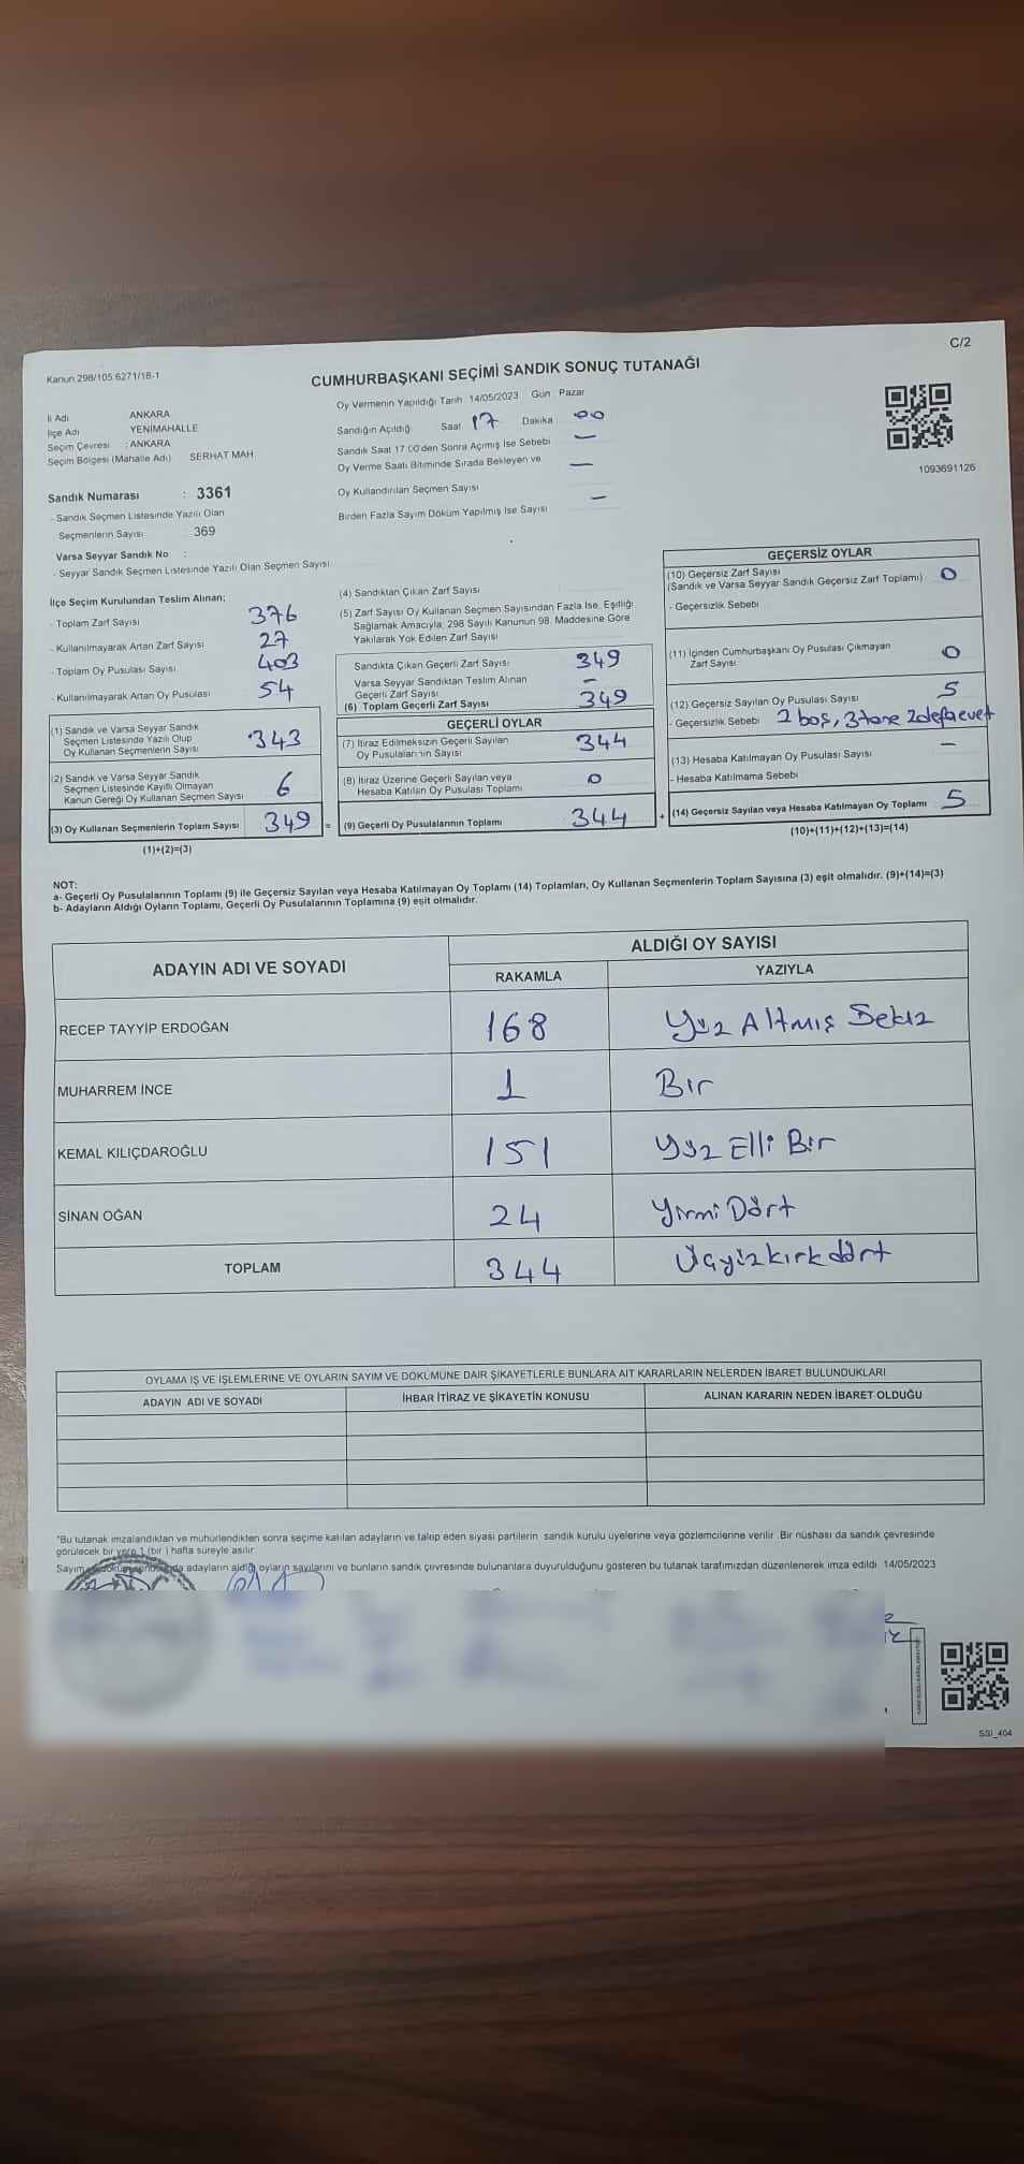 C/2
Kanun 298/105 6271/18-1
CUMHURBAŞKANI SEÇİMİ SANDIK SONUÇ TUTANAĞI
İl Adı ANKARA
İlçe Adı YENİMAHALLE
Seçim Çevresi : ANKARA
Seçim Bölgesi (Mahalle Adı) SERHAT MAH.
Oy Vermenin Yapıldığı Tarih 14/05/2023 Gün Pazar
Sandığın Açıldığı Saat 17 Dakika 00
Sandık Saat 17 00'den Sonra Açımış İse Sebebi —
Oy Verme Saati Bitiminde Sırada Bekleyen ve —
Oy Kullandırılan Seçmen Sayısı
Birden Fazla Sayım Döküm Yapılmış İse Sayısı —
1093691126
Sandık Numarası : 3361
- Sandık Seçmen Listesinde Yazılı Olan
Seçmenlerin Sayısı 369
Varsa Seyyar Sandık No :
- Seyyar Sandık Seçmen Listesinde Yazılı Olan Seçmen Sayısı
İlçe Seçim Kurulundan Teslim Alınan;
- Toplam Zarf Sayısı 376
- Kullanılmayarak Artan Zarf Sayısı 27
- Toplam Oy Pusulası Sayısı 403
- Kullanılmayarak Artan Oy Pusulası 54
(1) Sandık ve Varsa Seyyar Sandık
Seçmen Listesinde Yazılı Olup
Oy Kullanan Seçmenlerin Sayısı 343
(2) Sandık ve Varsa Seyyar Sandık
Seçmen Listesinde Kayıtlı Olmayan
Kanun Gereği Oy Kullanan Seçmen Sayısı 6
(3) Oy Kullanan Seçmenlerin Toplam Sayısı 349 =
(1)+(2)=(3)
(4) Sandıktan Çıkan Zarf Sayısı
(5) Zarf Sayısı Oy Kullanan Seçmen Sayısından Fazla İse, Eşitliği
Sağlamak Amacıyla, 298 Sayılı Kanunun 98. Maddesine Göre
Yakılarak Yok Edilen Zarf Sayısı
Sandıkta Çıkan Geçerli Zarf Sayısı 349
Varsa Seyyar Sandıktan Teslim Alınan
Geçerli Zarf Sayısı —
(6) Toplam Geçerli Zarf Sayısı 349
GEÇERLİ OYLAR
(7) İtiraz Edilmeksizin Geçerli Sayılan
Oy Pusulalarının Sayısı 344
(8) İtiraz Üzerine Geçerli Sayılan veya
Hesaba Katılan Oy Pusulası Toplamı 0
(9) Geçerli Oy Pusulalarının Toplamı 344 +
GEÇERSİZ OYLAR
(10) Geçersiz Zarf Sayısı
(Sandık ve Varsa Seyyar Sandık Geçersiz Zarf Toplamı) 0
- Geçersizlik Sebebi
(11) İçinden Cumhurbaşkanı Oy Pusulası Çıkmayan
Zarf Sayısı 0
(12) Geçersiz Sayılan Oy Pusulası Sayısı 5
- Geçersizlik Sebebi 2 boş, 3 tane 2 defa evet
(13) Hesaba Katılmayan Oy Pusulası Sayısı —
- Hesaba Katılmama Sebebi
(14) Geçersiz Sayılan veya Hesaba Katılmayan Oy Toplamı 5
(10)+(11)+(12)+(13)=(14)
NOT:
a- Geçerli Oy Pusulalarının Toplamı (9) ile Geçersiz Sayılan veya Hesaba Katılmayan Oy Toplamı (14) Toplamları, Oy Kullanan Seçmenlerin Toplam Sayısına (3) eşit olmalıdır. (9)+(14)=(3)
b- Adayların Aldığı Oyların Toplamı, Geçerli Oy Pusulalarının Toplamına (9) eşit olmalıdır.
ADAYIN ADI VE SOYADI
ALDIĞI OY SAYISI
RAKAMLA YAZIYLA
RECEP TAYYİP ERDOĞAN 168 Yüz Altmış Sekiz
MUHARREM İNCE 1 Bir
KEMAL KILIÇDAROĞLU 151 Yüz Elli Bir
SİNAN OĞAN 24 Yirmi Dört
TOPLAM 344 Üçyüzkırkdört
OYLAMA İŞ VE İŞLEMLERİNE VE OYLARIN SAYIM VE DÖKÜMÜNE DAİR ŞİKAYETLERLE BUNLARA AİT KARARLARIN NELERDEN İBARET BULUNDUKLARI
ADAYIN ADI VE SOYADI İHBAR İTİRAZ VE ŞİKAYETİN KONUSU ALINAN KARARIN NEDEN İBARET OLDUĞU
*Bu tutanak imzalandıktan ve mühürlendikten sonra seçime katılan adayların ve talep eden siyasi partilerin sandık kurulu üyelerine veya gözlemcilerine verilir. Bir nüshası da sandık çevresinde
görülecek bir yere 1 (bir) hafta süreyle asılır.
Sayım adayların aldığı oyların sayılarını ve bunların sandık çevresinde bulunanlara duyurulduğunu gösteren bu tutanak tarafımızdan düzenlenerek imza edildi. 14/05/2023
SSI_404